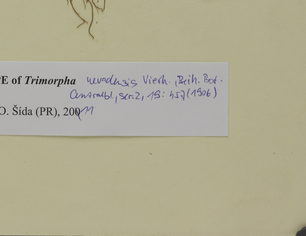 PE of Trimorpha nevadensis Vierh., Beih. Bot.
Centralbl., ser. 2, 19: 457 (1906)
O. Šída (PR), 2011